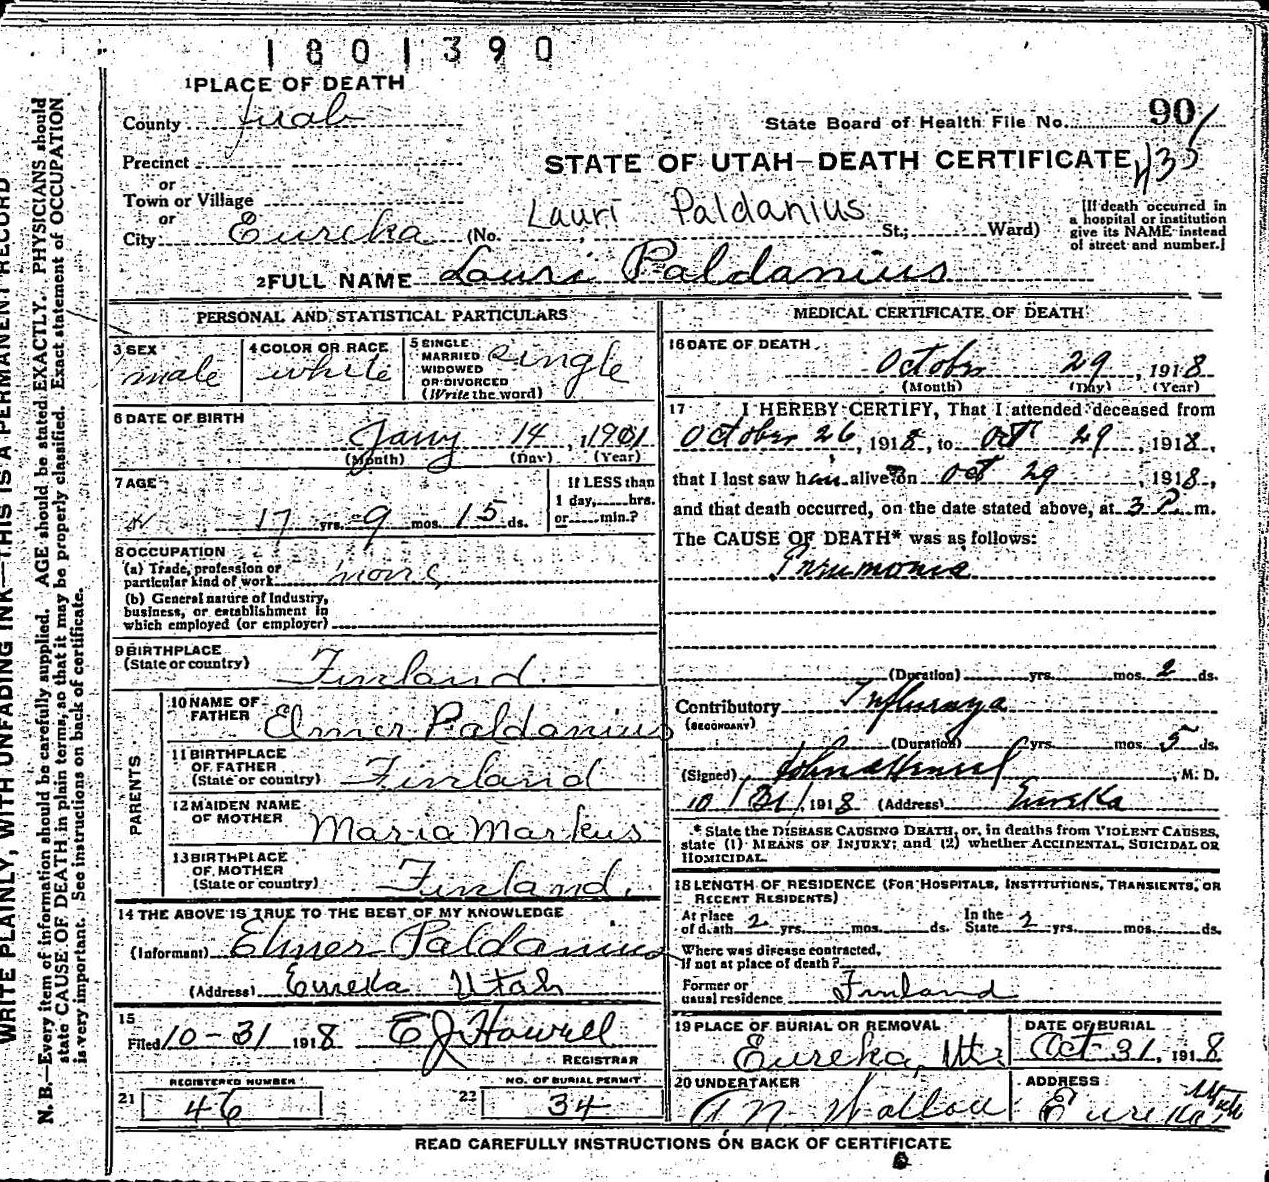 1801390
1 PLACE OF DEATH
County Juab
State Board of Health File No. 90
435
Precinct
or
Town or Village
or
STATE OF UTAH—DEATH CERTIFICATE
Lauri Paldanius
City Eureka (No. , St.; Ward)
[If death occurred in
a hospital or institution
give its NAME instead
of street and number.]
2 FULL NAME Lauri Paldanius
PERSONAL AND STATISTICAL PARTICULARS
3 SEX
male
4 COLOR OR RACE
white
5 SINGLE
MARRIED
WIDOWED
OR DIVORCED
(Write the word)
Single
6 DATE OF BIRTH
Jany 14, 1901
(Month) (Day) (Year)
7 AGE
17 yrs. 9 mos. 15 ds.
If LESS than
1 day, hrs.
or min.?
8 OCCUPATION
(a) Trade, profession or
particular kind of work none
(b) General nature of Industry,
business, or establishment in
which employed (or employer)
9 BIRTHPLACE
(State or country) Finland
PARENTS
10 NAME OF
FATHER Elmer Paldanius
11 BIRTHPLACE
OF FATHER
(State or country) Finland
12 MAIDEN NAME
OF MOTHER Maria Markus
13 BIRTHPLACE
OF MOTHER
(State or country) Finland.
14 THE ABOVE IS TRUE TO THE BEST OF MY KNOWLEDGE
(Informant) Elmer Paldanius
(Address) Eureka Utah
15
Filed 10-31 1918 E J Howell
REGISTRAR
REGISTERED NUMBER
21 46
NO. OF BURIAL PERMIT
22 34
MEDICAL CERTIFICATE OF DEATH
16 DATE OF DEATH
October 29, 1918
(Month) (Day) (Year)
17 I HEREBY CERTIFY, That I attended deceased from
October 26, 1918, to Oct 29, 1918,
that I last saw him alive on Oct 29, 1918,
and that death occurred, on the date stated above, at 3 P. m.
The CAUSE OF DEATH* was as follows:
Pneumonia
(Duration) yrs. mos. 2 ds.
Contributory Influenza
(SECONDARY)
(Duration) yrs. mos. 5 ds.
(Signed) , M. D.
10/31/1918 (Address) Eureka
* State the DISEASE CAUSING DEATH, or, in deaths from VIOLENT CAUSES,
state (1) MEANS OF INJURY; and (2) whether ACCIDENTAL, SUICIDAL OR
HOMICIDAL.
18 LENGTH OF RESIDENCE (FOR HOSPITALS, INSTITUTIONS, TRANSIENTS, OR
RECENT RESIDENTS)
At place
of death 2 yrs. mos. ds.
In the
State 2 yrs. mos. ds.
Where was disease contracted,
If not at place of death?
Former or
usual residence Finland
19 PLACE OF BURIAL OR REMOVAL
Eureka,
DATE OF BURIAL
Oct 31, 1918
20 UNDERTAKER
ADDRESS
Eureka Utah
READ CAREFULLY INSTRUCTIONS ON BACK OF CERTIFICATE
WRITE PLAINLY, WITH UNFADING INK—THIS IS A PERMANENT RECORD
N. B.—Every item of information should be carefully supplied. AGE should be stated EXACTLY. PHYSICIANS should
state CAUSE OF DEATH in plain terms, so that it may be properly classified. Exact statement of OCCUPATION
is very important. See instructions on back of certificate.